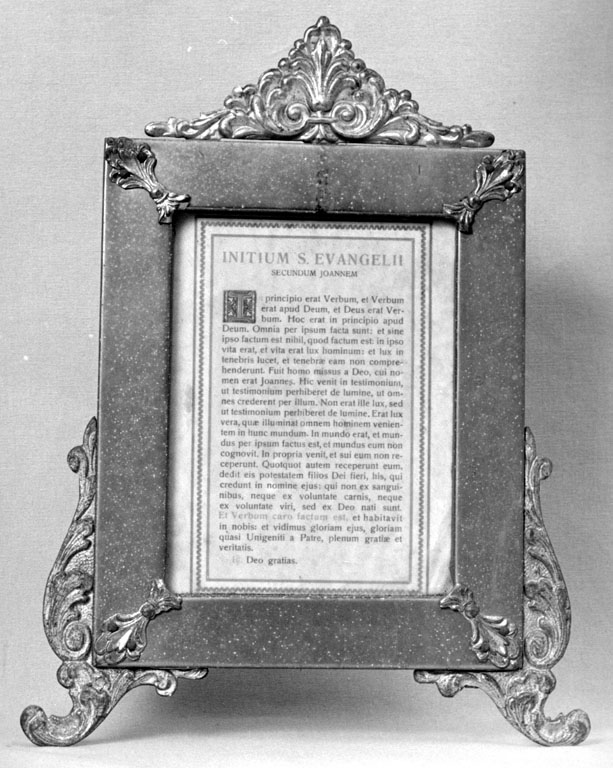 INITIUM S. EVANGELII
SECUNDUM JOANNEM
In principio erat Verbum, et Verbum
erat apud Deum, et Deus erat Ver-
bum. Hoc erat in principio apud
Deum. Omnia per ipsum facta sunt: et sine
ipso factum est nihil, quod factum est: in ipso
vita erat, et vita erat lux hominum: et lux in
tenebris lucet, et tenebræ eam non compre-
henderunt. Fuit homo missus a Deo, cui no-
men erat Joannes. Hic venit in testimonium,
ut testimonium perhiberet de lumine, ut om-
nes crederent per illum. Non erat ille lux, sed
ut testimonium perhiberet de lumine. Erat lux
vera, quæ illuminat omnem hominem venien-
tem in hunc mundum. In mundo erat, et mun-
dus per ipsum factus est, et mundus eum non
cognovit. In propria venit, et sui eum non re-
ceperunt. Quotquot autem receperunt eum,
dedit eis potestatem filios Dei fieri, his, qui
credunt in nomine ejus: qui non ex sangui-
nibus, neque ex voluntate carnis, neque
ex voluntate viri, sed ex Deo nati sunt.
Et Verbum caro factum est, et habitavit
in nobis: et vidimus gloriam ejus, gloriam
quasi Unigeniti a Patre, plenum gratiæ et
veritatis.
Deo gratias.